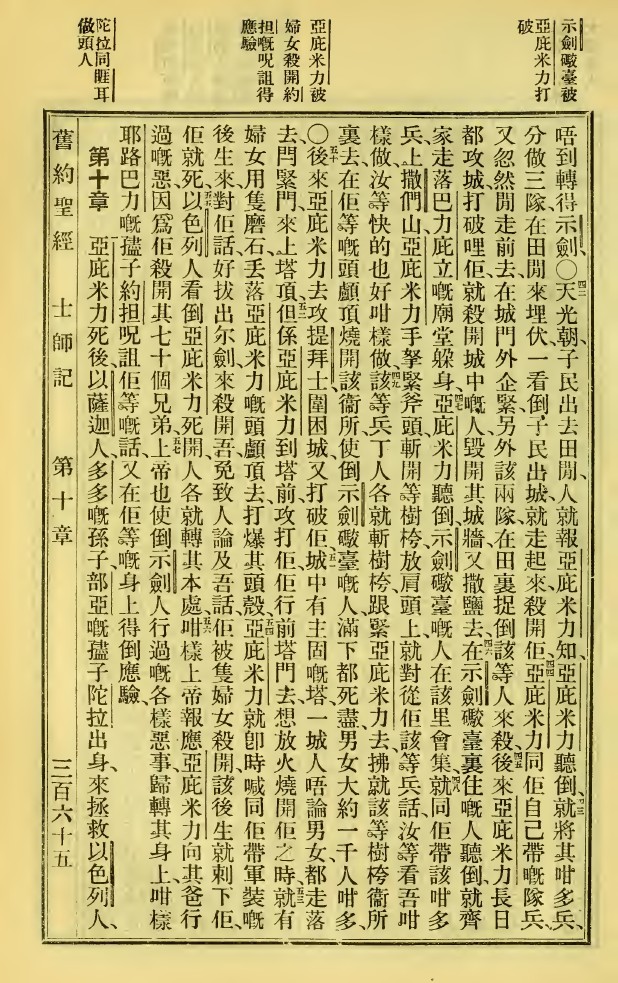 示劍礮臺被
亞庇米力打
破
亞庇米力被
婦女殺開約
担嘅呪詛得
應驗
陀拉同睚耳
做頭人
唔到轉得示劍、〇四二天光朝、子民出去田閒、人就報亞庇米力知、亞庇米力聽倒、四三就將其咁多兵、
分做三隊在田閒來埋伏一看倒子民出城、就走起來殺開佢、四四亞庇米力同佢自己帶嘅隊兵、
又忽然閒走前去在城門外企緊另外該兩隊在田裏捉倒該等人來殺、四五後來亞庇米力長日
都攻城打破哩佢、就殺開城中嘅人、毀開其城牆、又撒鹽去、四六在示劍礮臺裏住嘅人聽倒、就齊
家走落巴力庇立嘅廟堂躲身、四七亞庇米力聽倒示劍礮臺嘅人在該里會集、四八就同佢帶該咁多
兵、上撒們山、亞庇米力手拏緊斧頭、斬開等樹椅放肩頭上、就對從佢該等兵話、汝等看吾咁
樣做、汝等快的也好咁樣做、四九該等兵丁人各就斬樹椅跟緊亞庇米力去、拂就該等樹椅衞所
裏去、在佢等嘅頭顱頂燒開該衞所、使倒示劍礮臺嘅人、滿下都死盡、男女大約一千人咁多、
〇五十後來亞庇米力去攻提拜士、圍困城、又打破佢、五一城中有主固嘅塔、一城人唔論男女都走落
去、閂緊門、來上塔頂、五二但係亞庇米力到塔前攻打佢、佢行前塔門去、想放火燒開佢之時、五三就有
婦女用隻磨石丢落亞庇米力嘅頭顱頂去、打爆其頭殼、五四亞庇米力就卽時喊同佢帶軍裝嘅
後生來、對佢話、好拔出尔劍來殺開吾、免致人論及吾話、佢被隻婦女殺開、該後生就刺下佢、
佢就死、五五以色列人看倒亞庇米力死開、人各就轉其本處、五六咁樣上帝報應亞庇米力向其爸行
過嘅惡、因爲佢殺開其七十個兄弟、五七上帝也使倒示劍人行過嘅各樣惡事、歸轉其身上、咁樣
耶路巴力嘅孻子約担呪詛佢等嘅話、又在佢等嘅身上得倒應驗、
第十章　亞庇米力死後、以薩迦人多多嘅孫子、部亞嘅孻子陀拉出身、來拯救以色列人、
舊約聖經　士師記　第十章　三百六十五